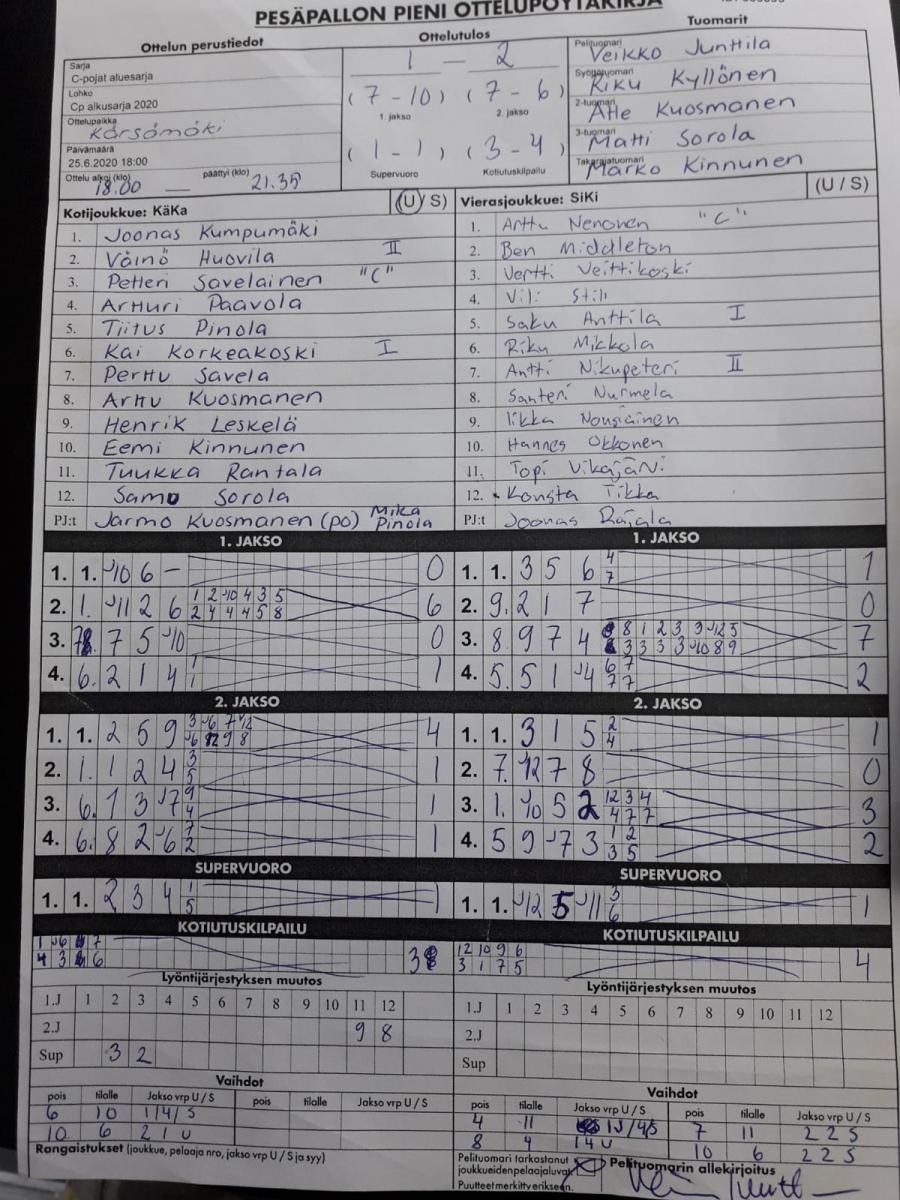 PESÄPALLON PIENI OTTELUPÖYTÄKIRJA
Ottelun perustiedot
Ottelutulos
Tuomarit
Sarja
C-pojat aluesarja
Lohko
Cp alkusarja 2020
Ottelupaikka
Kärsämäki
Päivämäärä
25.6.2020 18:00
Ottelu alkoi (klo) 18.00 — päättyi (klo) 21.35
1 — 2
(7 - 10) (7 - 6)
1. jakso 2. jakso
(1 - 1) (3 - 4)
Supervuoro Kotiutuskilpailu
Pelituomari
Veikko Junttila
Syöttötuomari
Riku Kyllönen
2-tuomari
Atte Kuosmanen
3-tuomari
Matti Sorola
Takarajatuomari
Marko Kinnunen
Kotijoukkue: KäKa (U / S)
1. Joonas Kumpumäki
2. Väinö Huovila II
3. Petteri Savelainen "C"
4. Artturi Paavola
5. Tiitus Pinola
6. Kai Korkeakoski I
7. Perttu Savela
8. Arttu Kuosmanen
9. Henrik Leskelä
10. Eemi Kinnunen
11. Tuukka Rantala
12. Samu Sorola
PJ:t Jarmo Kuosmanen (po) Mika Pinola
Vierasjoukkue: SiKi (U / S)
1. Arttu Nenonen "C"
2. Ben Middleton
3. Vertti Veittikoski
4. Vili Stili
5. Saku Anttila I
6. Riku Mikkola
7. Antti Nikupeteri II
8. Santeri Nurmela
9. Iikka Nousiainen
10. Hannes Okkonen
11. Topi
12. Konsta Tikka
PJ:t Joonas Rajala
1. JAKSO
1. 1. 10 6 – 0
2. 1. 11 2 6 1 2 10 4 3 5 6
2 4 4 4 5 8
3. 7 5 10 0
4. 6. 2 1 4 1 1
1
2. JAKSO
1. 1. 2 5 9 3 6 7 12 4
6 12 9 8
2. 1. 1 2 4 3 1
5
3. 6. 1 3 7 9 1
4
4. 6. 8 2 6 7 1
2
SUPERVUORO
1. 1. 2 3 4 1 1
5
KOTIUTUSKILPAILU
1 6 7
4 3 6 3
1. JAKSO
1. 1. 3 5 6 4 1
7
2. 9. 2 1 7 0
3. 8. 9 7 4 8 1 2 3 9 12 5 7
3 3 3 3 10 8 9
4. 5. 5 1 4 6 7 2
7 7
2. JAKSO
1. 1. 3 1 5 2 1
4
2. 7. 12 7 8 0
3. 1. 10 5 2 12 3 4 3
4 7 7
4. 5 9 7 3 1 2 2
3 5
SUPERVUORO
1. 1. 12 5 11 3 1
6
KOTIUTUSKILPAILU
12 10 9 6 4
3 1 7 5
Lyöntijärjestyksen muutos
1.J 1 2 3 4 5 6 7 8 9 10 11 12
2.J 9 8
Sup 3 2
Lyöntijärjestyksen muutos
1.J 1 2 3 4 5 6 7 8 9 10 11 12
2.J
Sup
Vaihdot
pois tilalle Jakso vrp U / S pois tilalle Jakso vrp U / S
6 10 1/4/S
10 6 2 1 U
Rangaistukset (joukkue, pelaaja nro, jakso vrp U / S ja syy)
Vaihdot
pois tilalle Jakso vrp U / S pois tilalle Jakso vrp U / S
4 11 /4/S 7 11 2 2 S
8 4 1 4 U 10 6 2 2 S
Pelituomari tarkastanut
joukkueiden pelaajaluvat
Puutteet merkitty erikseen.
Pelituomarin allekirjoitus